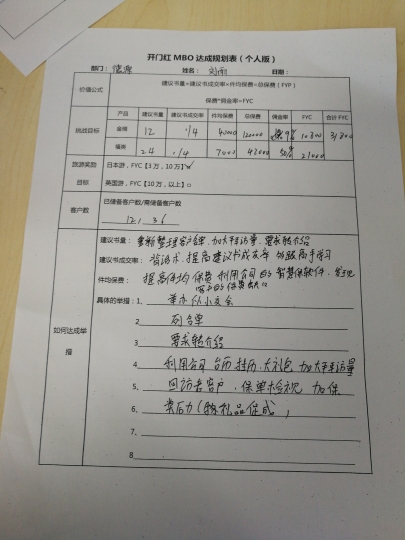 开门红 MBO 达成规划表（个人版）
部门： 姓名： 日期：
价值公式
建议书量*建议书成交率*件均保费=总保费（FYP）
保费*佣金率=FYC
挑战目标
产品 建议书量 建议书成交率 件均保费 总保费 佣金率 FYC 合计 FYC
12 1/4 40000 120000 9% 10800 31800
24 1/4 7000 42000 50% 21000
旅游奖励
目标
日本游，FYC【3 万，10 万】
英国游，FYC【10 万，以上】□
客户数
已储备客户数/需储备客户数
121 36
如何达成举措
建议书量： 重新整理客户单，加大拜访量，要求转介绍
建议书成交率： 背话术 提高建议书成交率 向高手学习
件均保费： 提高件均保费 利用公司的智慧保软件，
的保费缺口
具体的举措：1、 举办 小交会
2、 列名单
3、 要求转介绍
4、 利用公司台历 挂历、大礼包 加大拜访量
5、 回访老客户、保单检视 加保
6、 礼品促成
7、
8